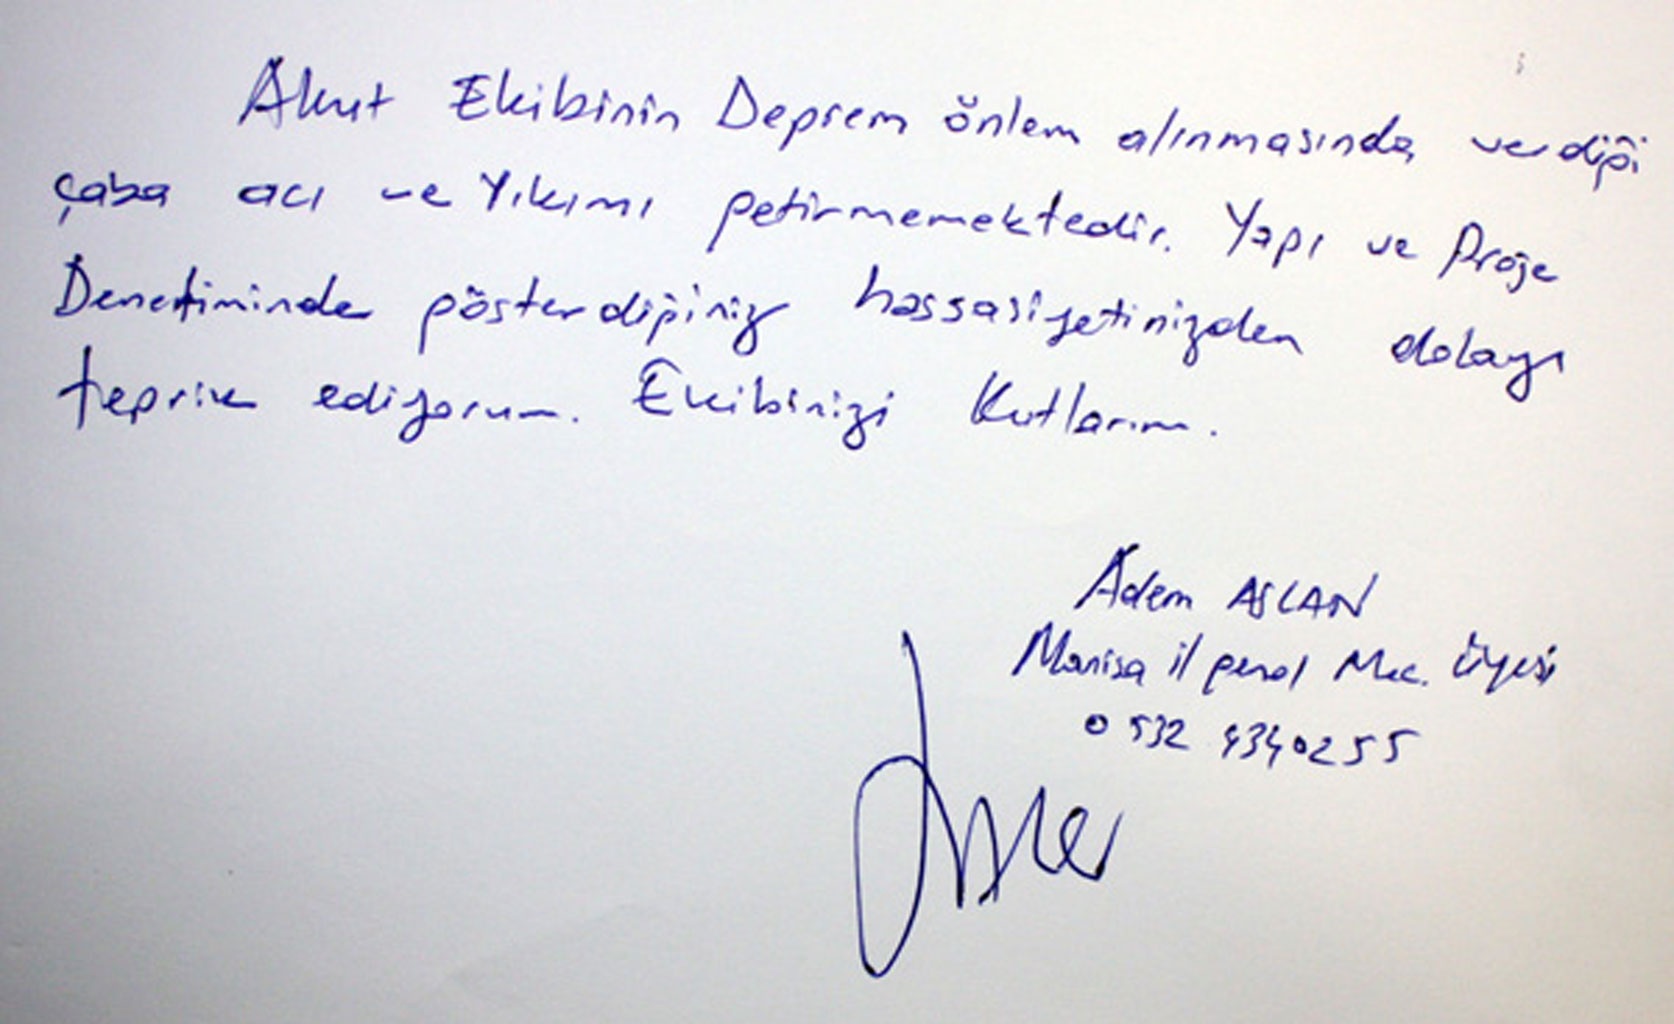 Akut Ekibinin Deprem önlem alınmasında verdiği
çaba acı ve Yıkımı getirmemektedir. Yapı ve Proje
Denetiminde gösterdiğiniz hassasiyetinizden dolayı
tegrik ediyorum. Ekibinizi Kutlarım.
Adem ASLAN
Manisa il genel Mec. Üyesi
0 532 4340255